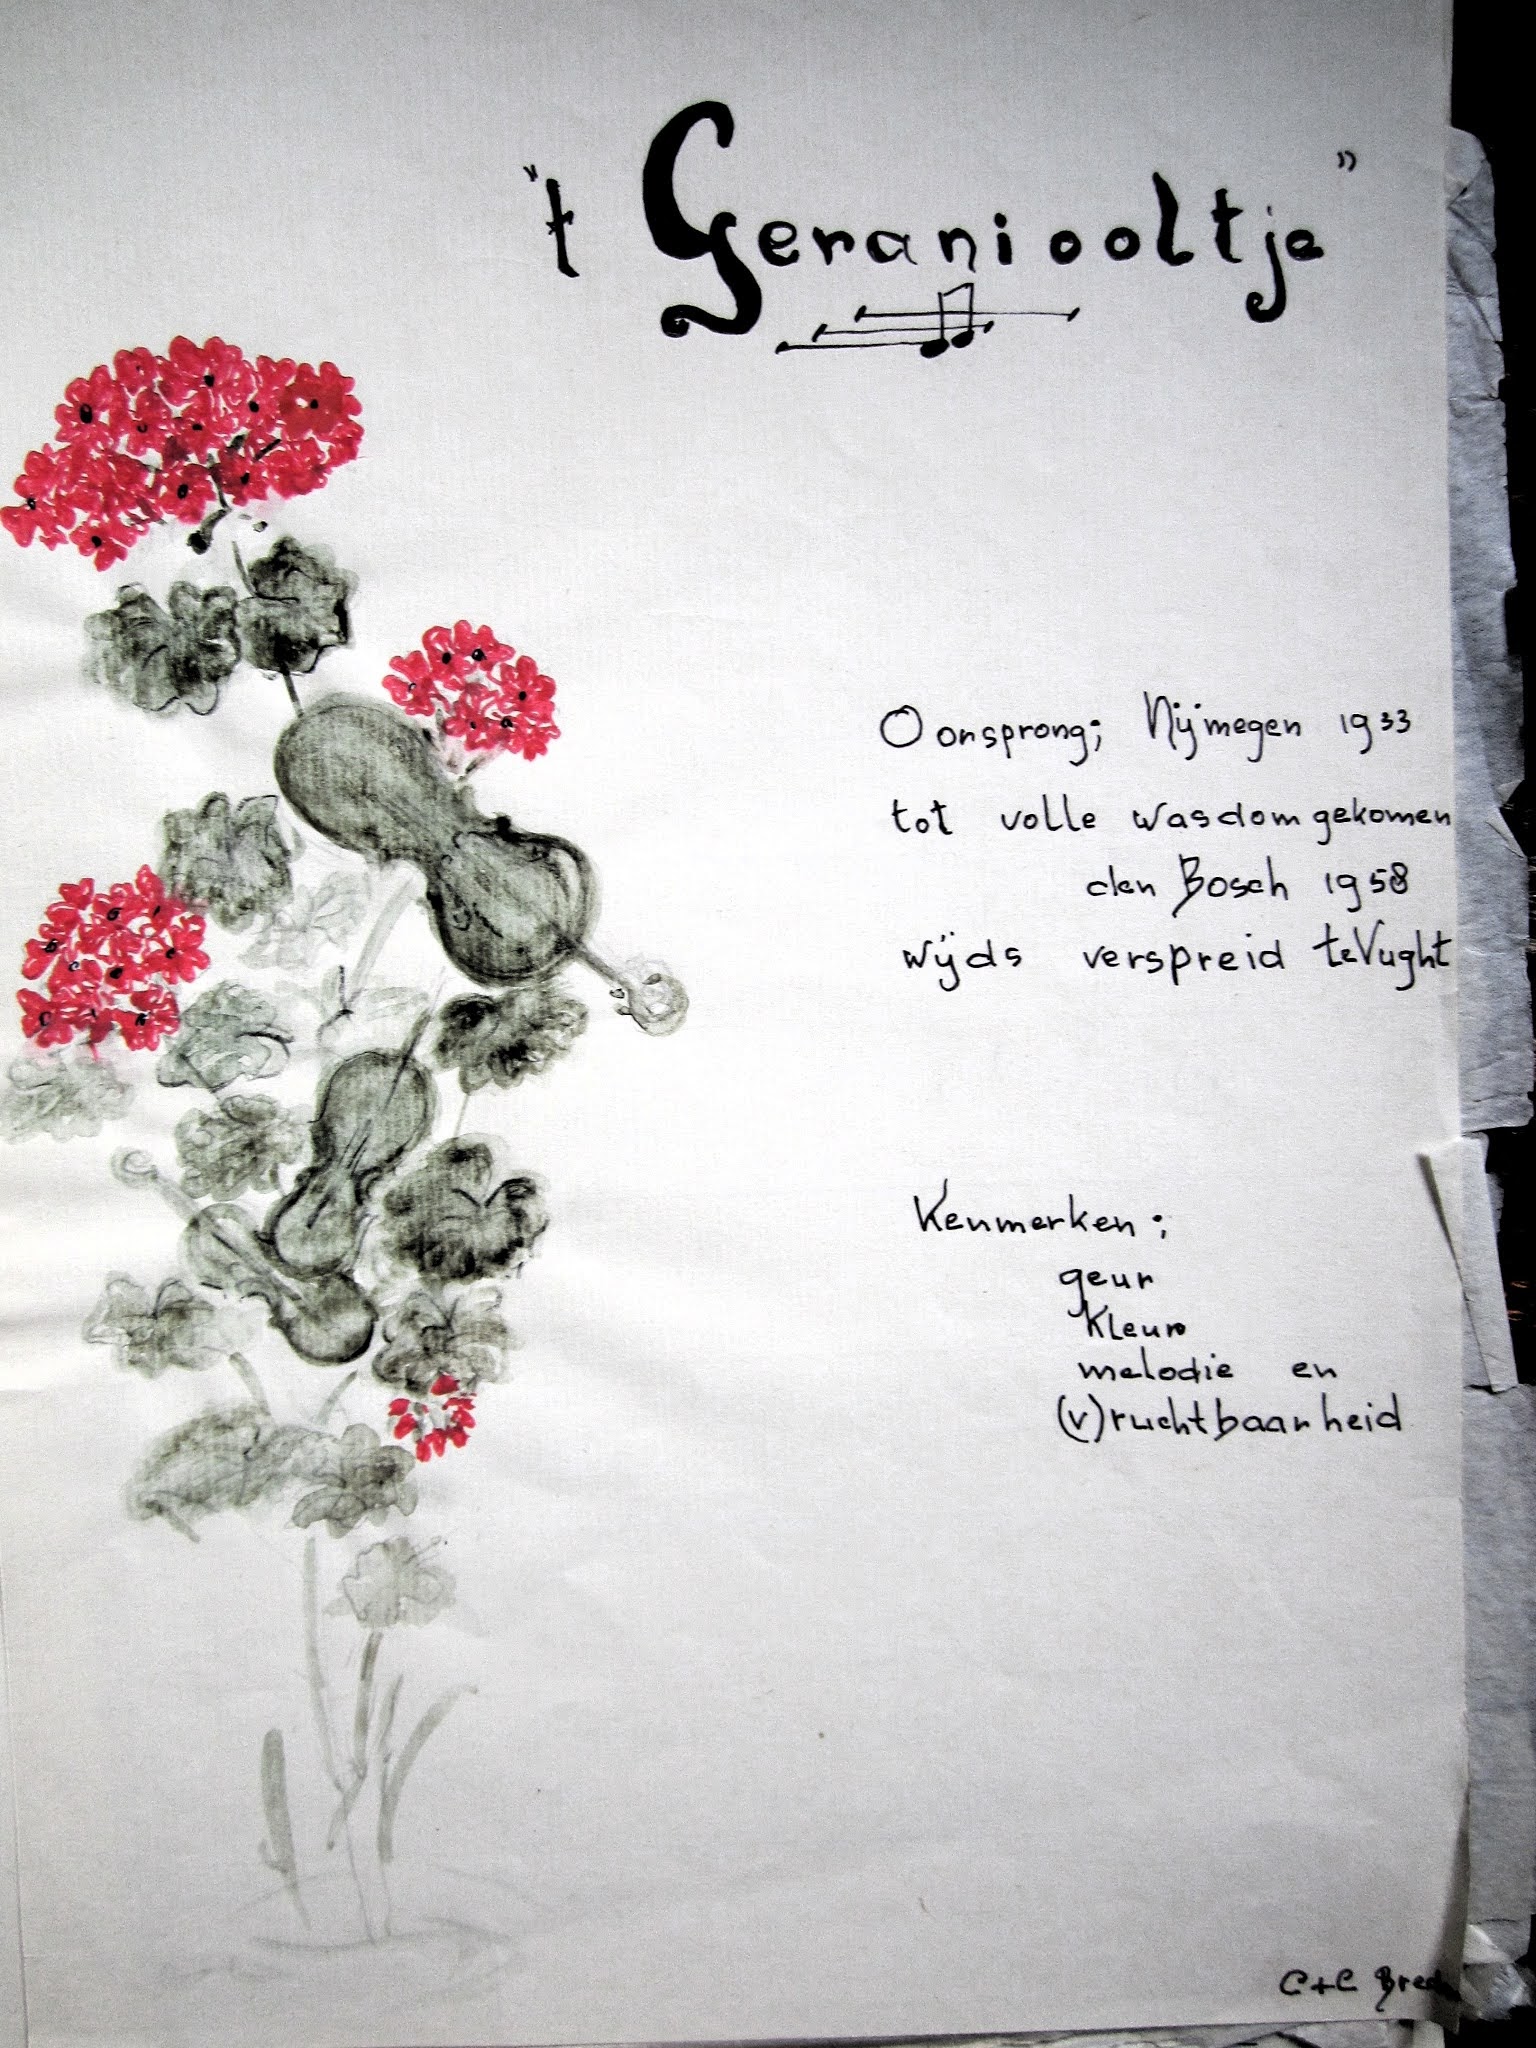 "t Geraniooltje"
Oonsprong; Nijmegen 1933
tot volle wasdom gekomen
den Bosch 1958
wijds verspreid te Vught
Kenmerken:
geur
Kleur
melodie en
(v)ruchtbaarheid
C+C